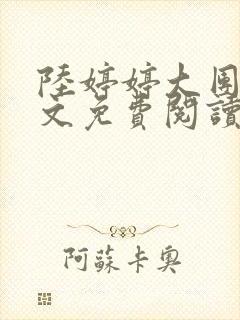 陸婷婷大圍
文免費閱讀
阿蘇卡奧